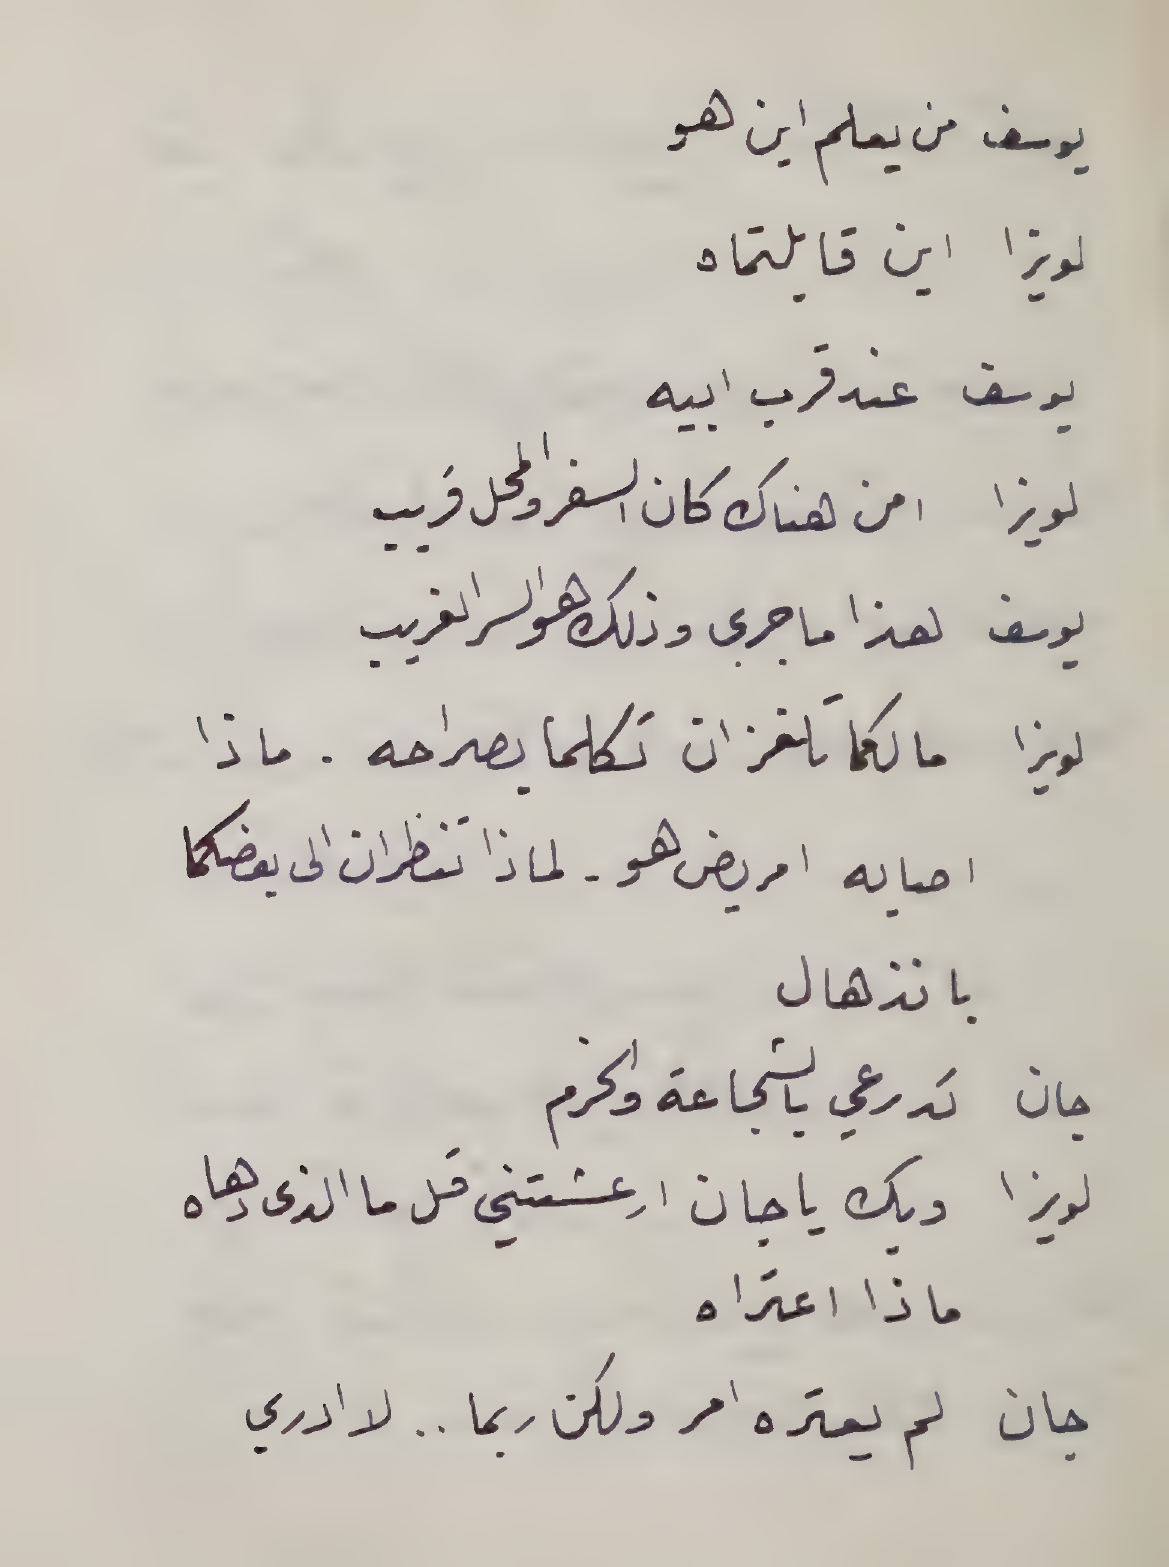 يوسف من يعلم اين هو
لويزا اين قابلتماه
يوسف عند قرب ابيه
لويزا امن هناك كان السفر والمحل قريب
يوسف لهذا ما جرى وذلك هو السر الغريب
لويزا مالكما تلغزان تكلما بصراحه . ماذا
اصابه امريض هو - لماذا تنظران الى بعضكما
بانذهال
جان تدرعي بالشجاعة والحزم
لويزا ويك يا جان ارعشتني قل ما الذى دهاه
ماذا اعتراه
جان لم يعتره امر ولكن ربما .. لا ادري